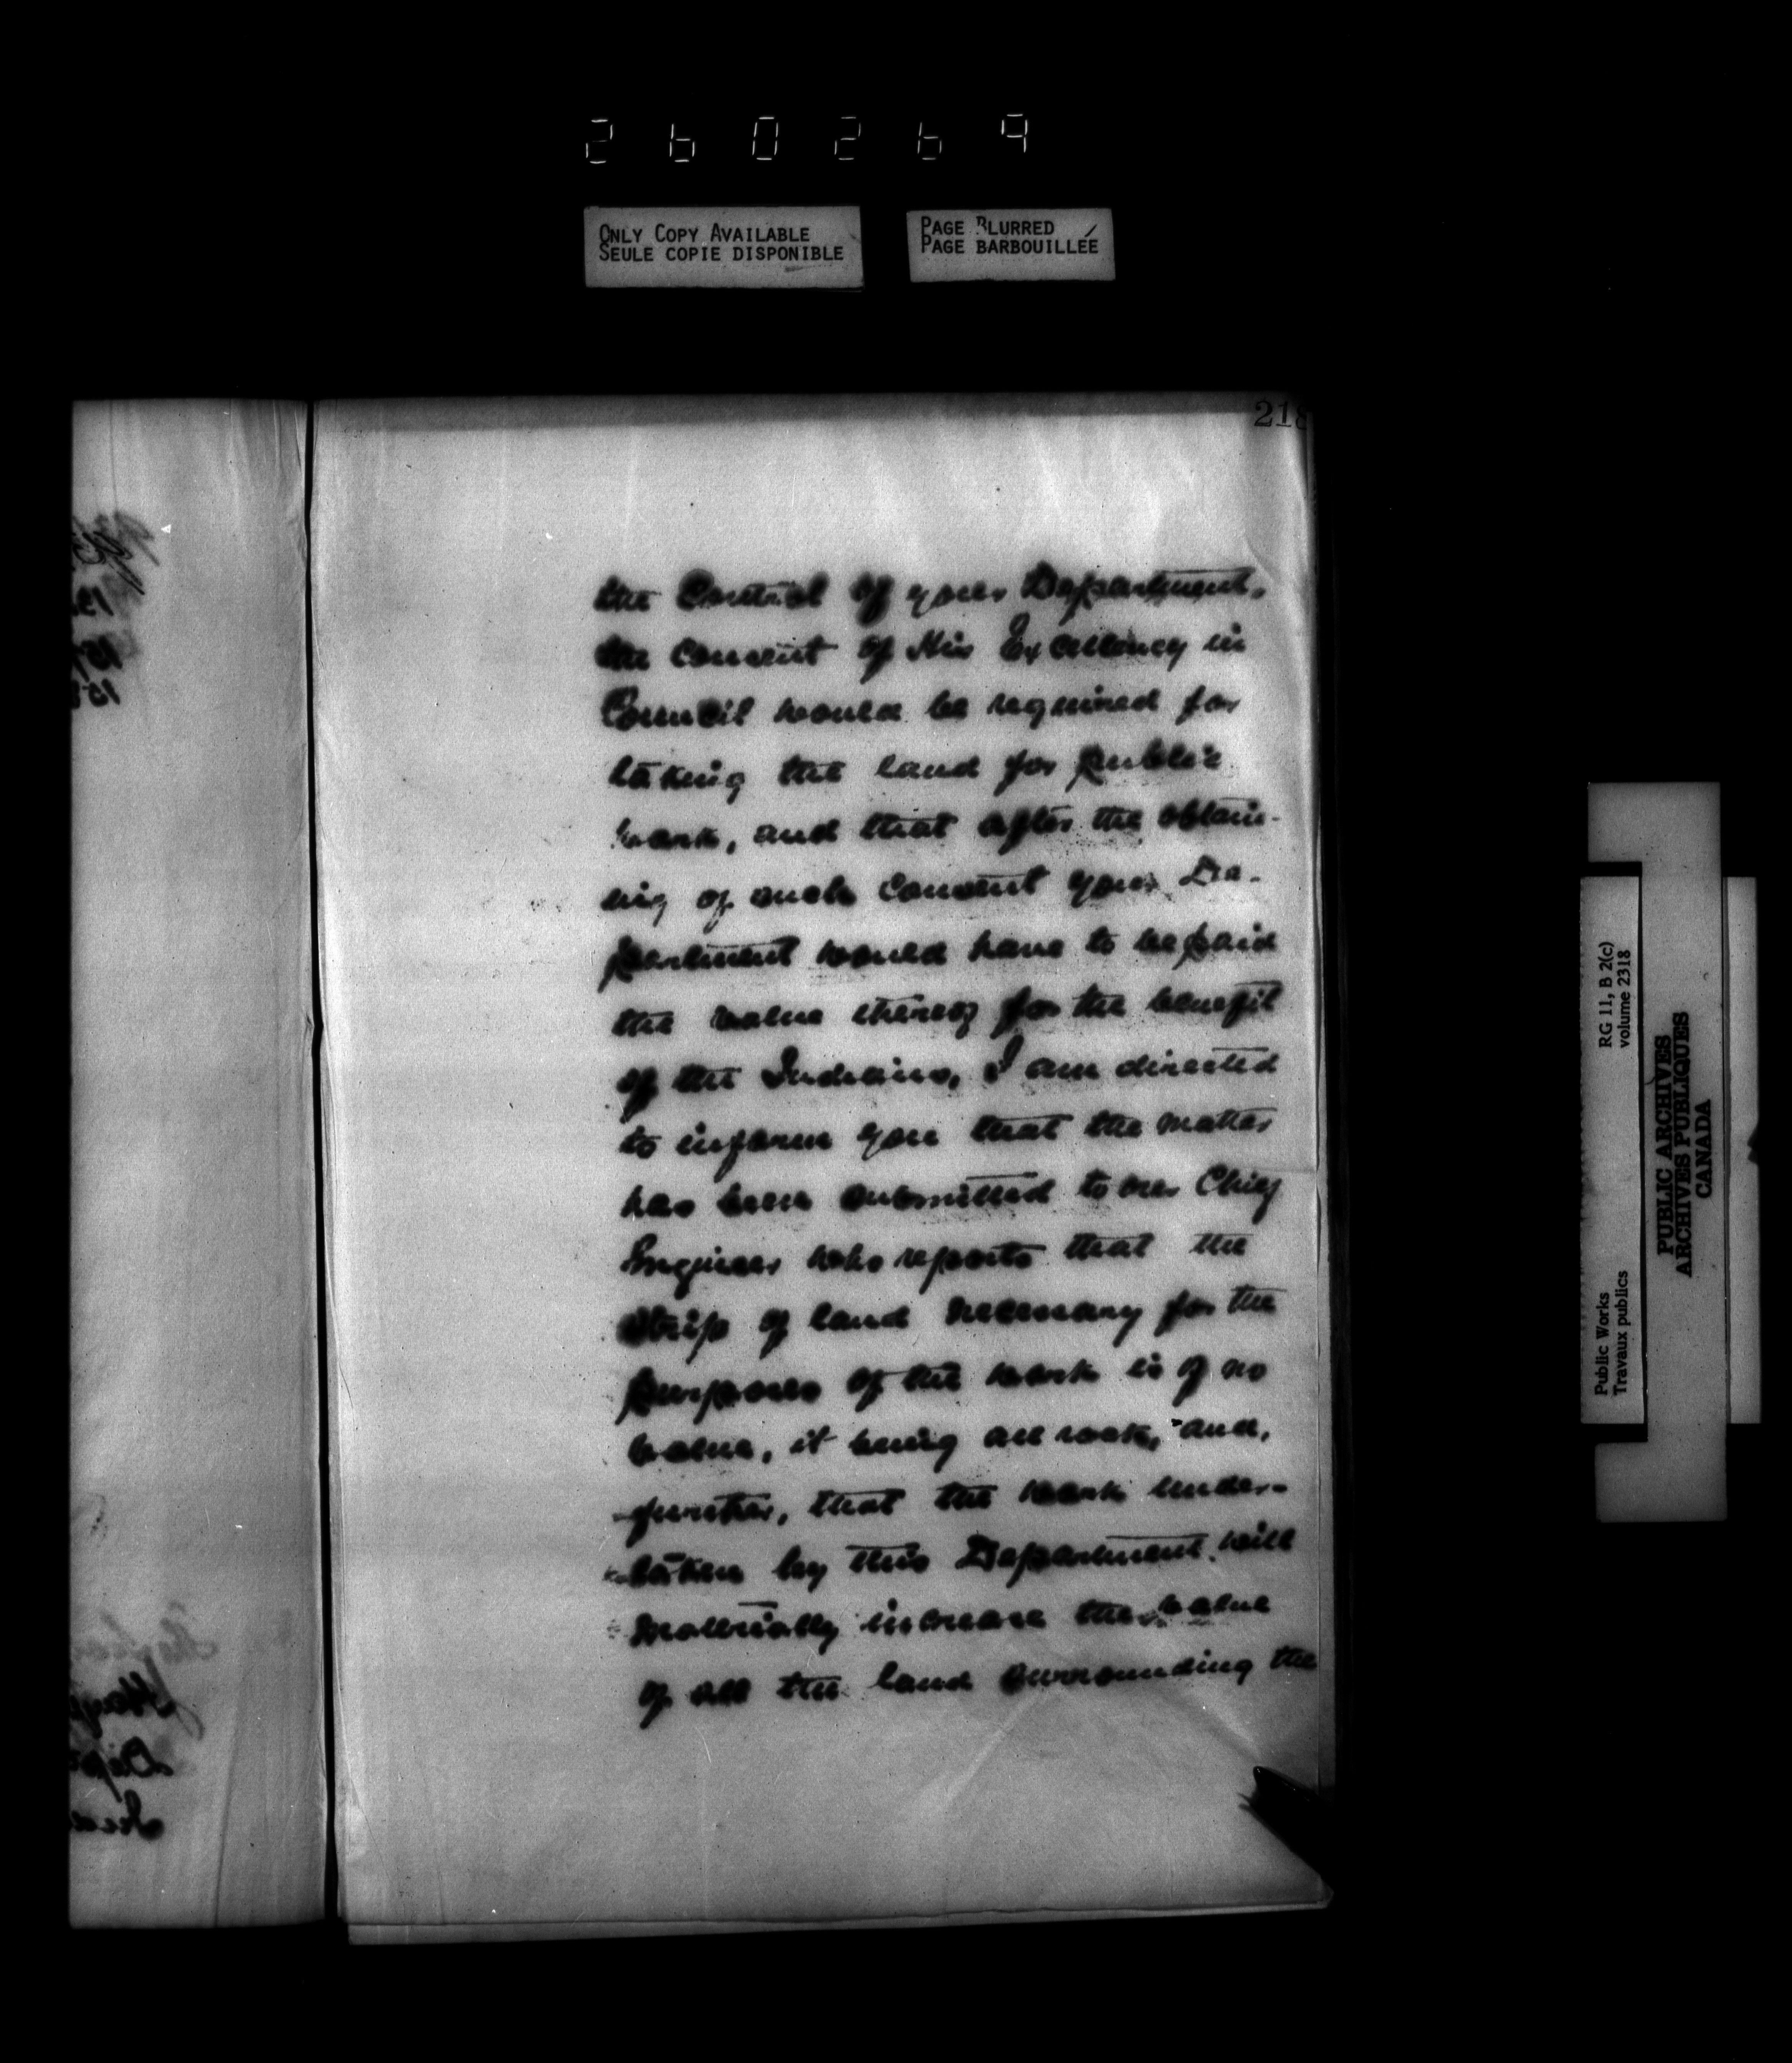 260269
ONLY COPY AVAILABLE
SEULE COPIE DISPONIBLE
PAGE BLURRED
PAGE BARBOUILLÉE
218
the Control of your Department,
the consent of His Excellency in
Council would be required for
taking the land for public
work, and that after the obtain-
ing of such consent your De-
partment would have to be paid
the value thereof for the benefit
of the Indians, I am directed
to inform you that the matter
has been submitted to our Chief
Engineer who reports that the
strip of land necessary for the
purposes of the work is of no
value, it being all rock, and,
further, that the work under-
taken by this Department will
materially increase the value
of all the land surrounding the
Public Works
Travaux publics
RG 11, B 2(c)
volume 2318
PUBLIC ARCHIVES
ARCHIVES PUBLIQUES
CANADA